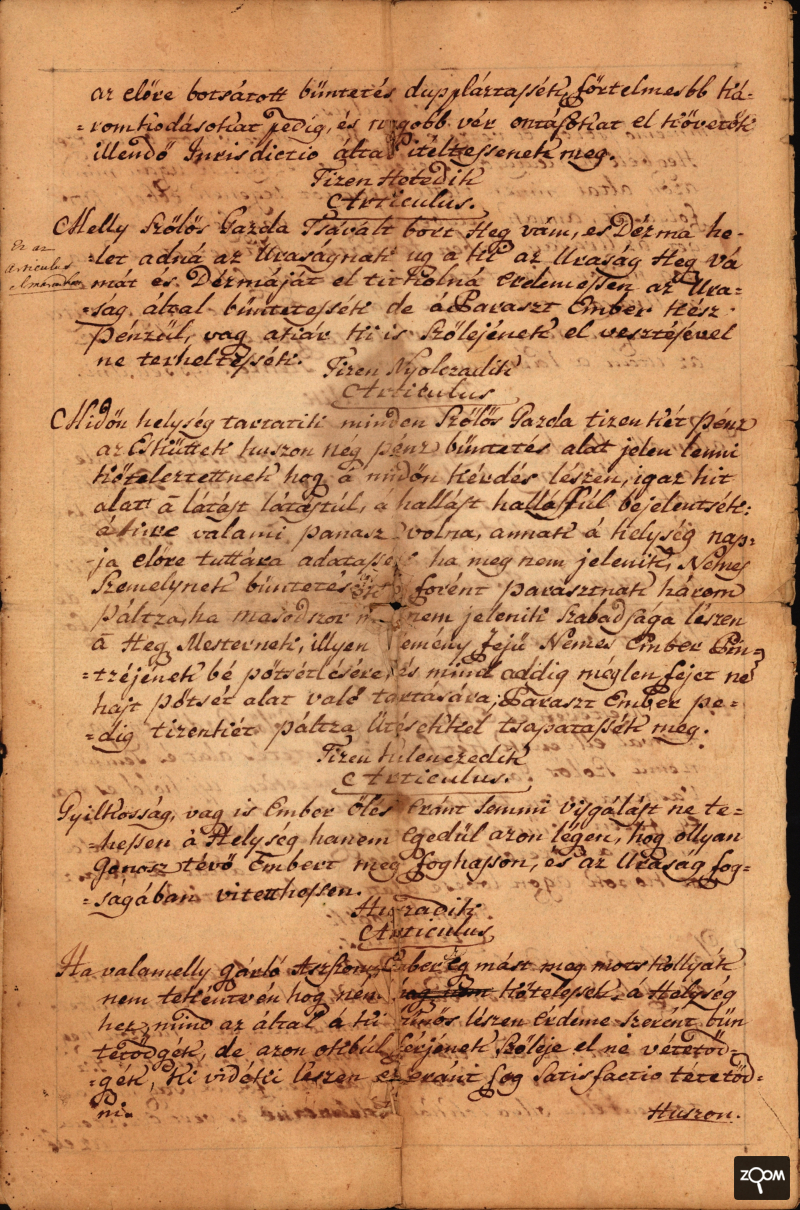 az elöre botsátott büntetés dupplázтassék, förtelmesbb ká-
-romkodásokat pedig, és nagobb vér ontásokat el követök
illendö Jurisdictio által itéltessenek meg.
Tizen Hetedik
Articulus.
Melly Szölös Gazda Tsávált bórt Heg vám, es Dézma he-
-let adná az Uraságnak ug a ki az Uraság Heg vá
Ez az
Articulus
elmaradhat
mát és Dézmáját el titkolná érdemessen az Ura-
-ság által büntetessék de á Paraszt Ember kész
Pénzül, vag akár ki is Szölejének el vesztésével
ne terheltessék.
Tizen Nyolczadik
Articulus
Midön helység tartatik minden Szölös Gazda tizenkét pénz
az Esküttek huszon nég pénz büntetés alat jelen lenni
köteleztettnek hog á midön kérdés lészen, igaz hit
alat á látást látástúl, á hallást hallástúl bejelentsék:
á kire valami panasz volna, annak á helység nap-
ja elöre tuttára adatassék ha meg nem jelenik, Nemes
Szemelynek büntetés forént parasztnak három
páltza, ha masodszor nem jelenik szabadsága lészen
á Heg Mesternek, illyen kemény fejü Nemes Ember Pin-
-tzéjének bé pötsétlésére és mind addig méglen fejet ne
hajt pötsét alat való tartására; Paraszt Ember pe-
-dig tizenkét páltza ütésekkel tsapatassék meg.
Tizen kilenczedik
Articulus.
Gyilkosság, vag is Ember ölés eránt semmi visgálást ne te-
-hessen á Helység hanem egedül azon légen, hog ollyan
gonosz tévö Embert meg foghasson, és az Uraság fog-
-ságában vitetthessen.
Huszadik
Articulus
Ha valamelly gázló Aszszony Ember ég mást meg motskollyák
nem tekéntvén hog nem vag nem kötelessek á Helység
hez mind az által á ki bünös lészen érdeme szerént bün
tetödgék, de azon okbúl férjének Szöleje el ne vétetöd-
-gék, ki vidéki lészen ez eránt fog satisfactio tétetöd-
ni.
Huszon.
ZOOM